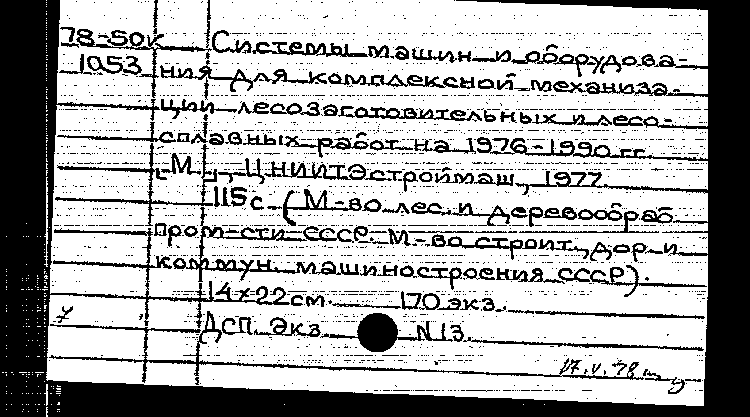 78-50к Системы машин и оборудова-
1053 ния для комплексной механиза-
ции лесозаготовительных и лесо-
сплавных работ на 1976-1990 гг.
[М.], ЦНИИТЭстроймаш, 1977.
115 с. (М-во лес. и деревообраб.
пром-сти СССР. М-во строит., дор. и
коммун. машиностроения СССР).
14×22 см. 170 экз.
ДСП. Экз. N 13.
17.V.78